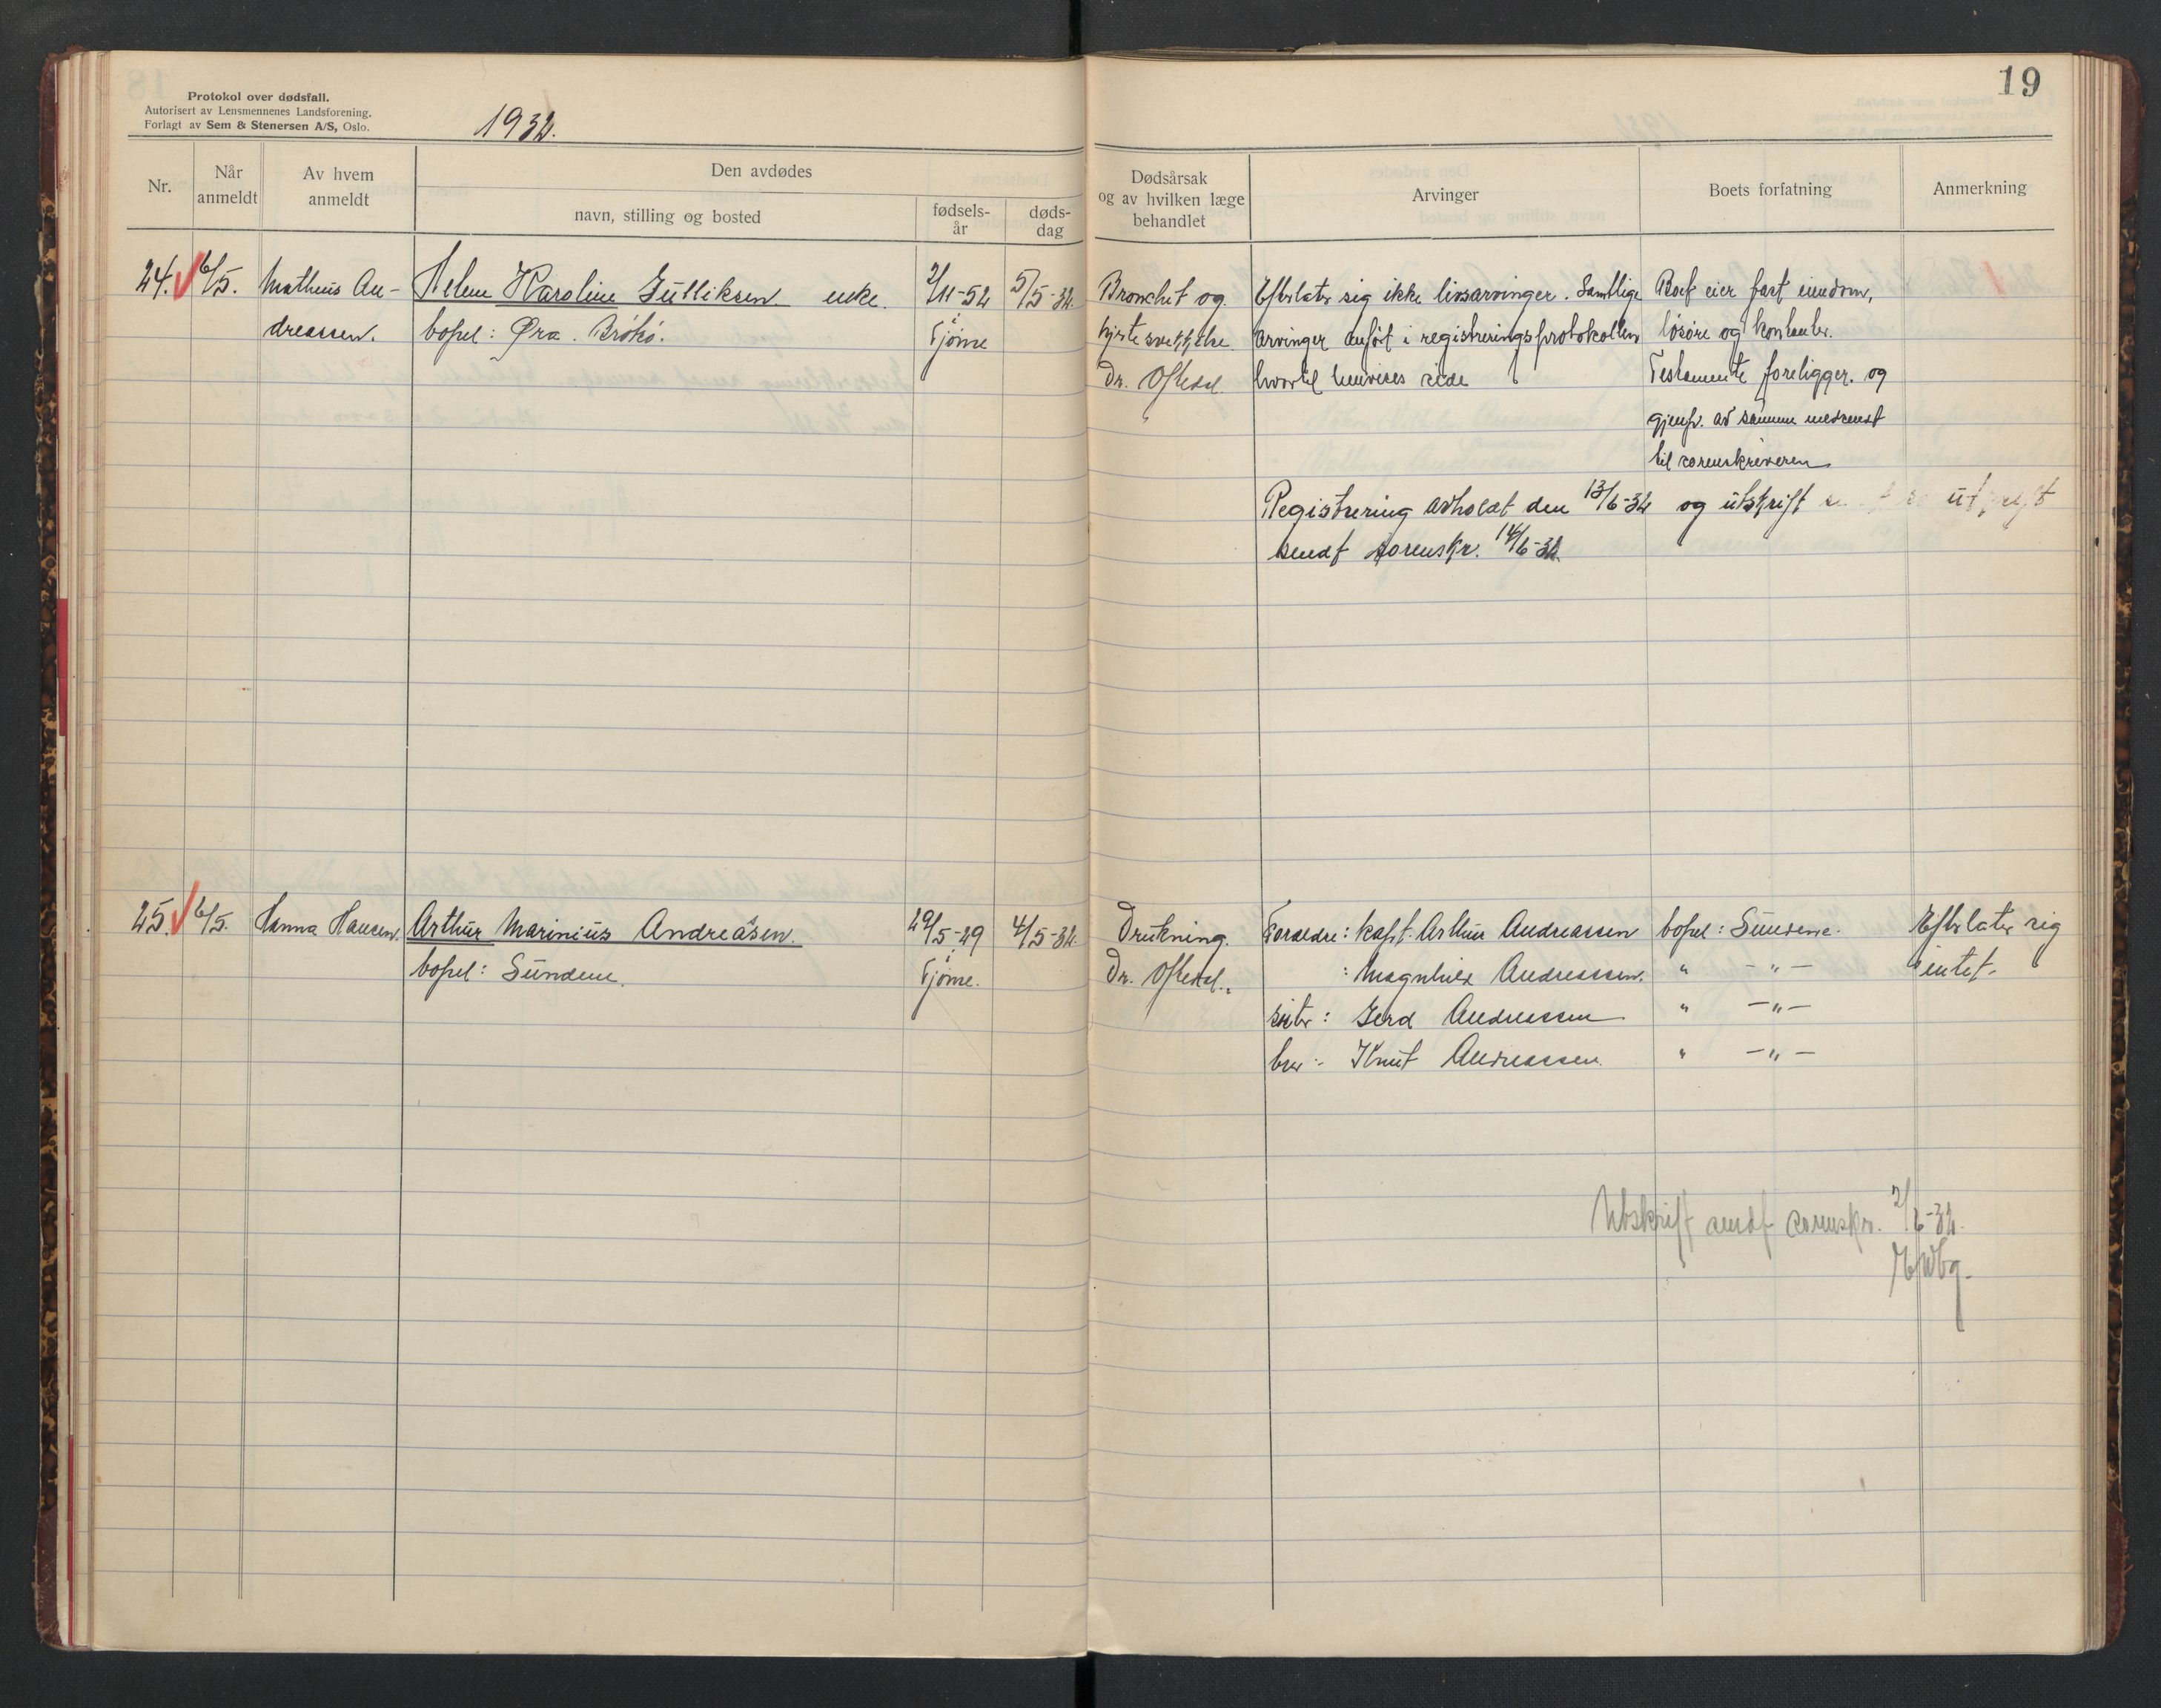 Protokol over dødsfall.
Autorisert av Lensmennenes Landsforening.
Forlagt av Sem & Stenersen A/S, Oslo.
1932.
19
Nr.
Når anmeldt
Av hvem anmeldt
Den avdødes
navn, stilling og bosted
fødsels-år
døds-dag
Dødsårsak og av hvilken læge behandlet
Arvinger
Boets forfatning
Anmerkning
24. 6/5. Matheus An- Helene Karoline Gulliksen enke. 2/11-52 5/5-32. Bronchit og Efterlater sig ikke livsarvinger. Samtlige Boet eier fast eiendom,
dreassen. bopel: Øra. Brøtsø. i Tjøme hjertesvekkelse. arvinger anført i registreringsprotokollen løsøre og kontanter.
Dr. Oftedal. hvortil henvises side Testamente foreligger. og
gjenp. av samme medsendt
til sorenskriveren
Registrering avholdt den 13/6-32 og utskrift
sendt sorenskr. 14/6-32.
25. 6/5. Hanna Hansen. Arthur Marinius Andreasen. 29/5-29 4/5-32. Drukning. Foreldre: kapt. Arthur Andreassen bopel: Sundene. Efterlater sig
bopel: Sundene. i Tjøme. Dr. Oftedal. : Magnhild Andreassen. " -"- intet.
søster: Gerd Andreassen " -"-
bror: Knut Andreassen. " -"-
Utskrift sendt sorenskr. 2/6-32.